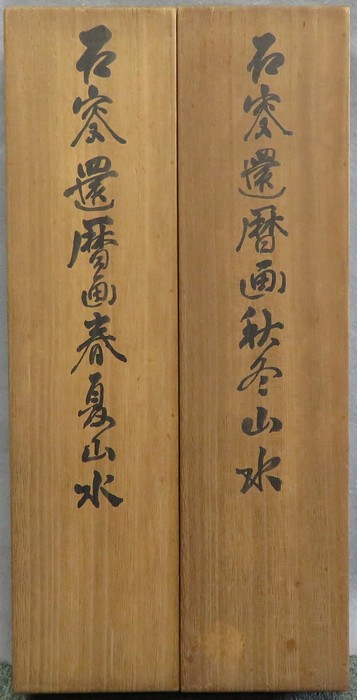 石 還暦画秋冬山水
石 還暦画春夏山水